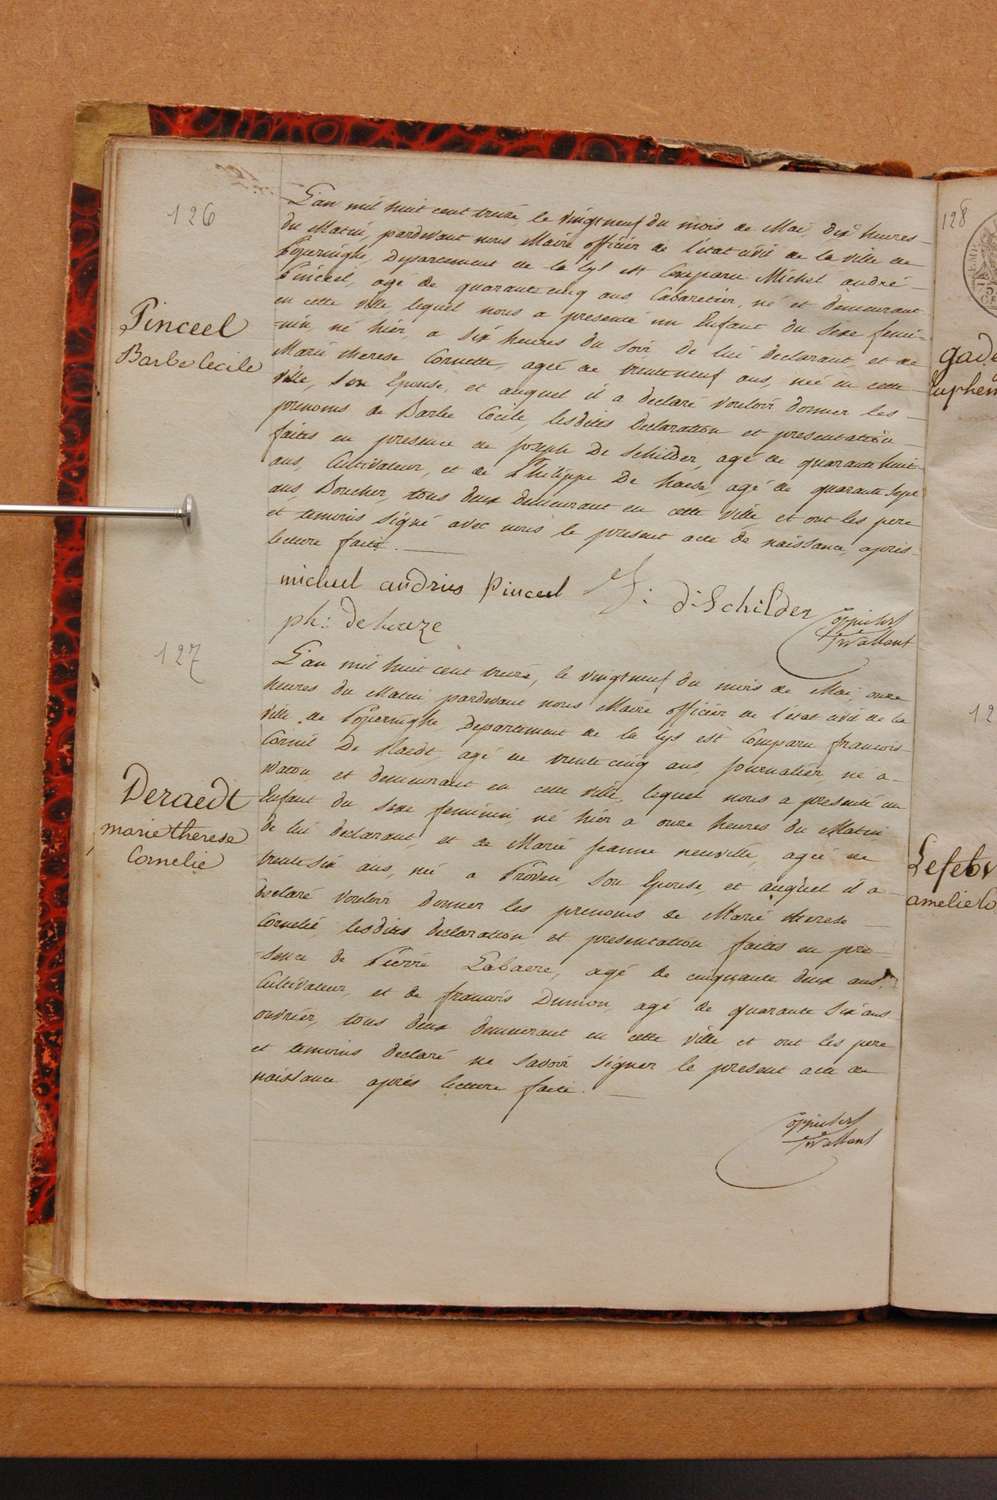 126
Pinceel
Barbe Cecile
L'an mil huit cent treize, le vingtneuf du mois de Mai, dix heures
du Matin, pardevant nous Maire officier de l'etat civil de la ville de
Poperinghe, Departement de la Lys est Comparu Michel andré
Pinceel, agé de quarantecinq ans Cabaretier, né et demeurant
en cette ville lequel nous a presenté un Enfant du sexe femi-
-nin, né hier, a six heures du soir de lui declarant, et de
Marie therese Cornette, agée de trenteneuf ans, née en cette
ville, son Epouse, et auquel il a declaré vouloir donner les
prenoms de Barbe Cecile, lesdites Declaration et presentation
faites en presence de joseph De Schilder, agé de quarantehuit
ans, Cultivateur, et de Philippe De haese, agé de quarante sept
ans, Boucher, tous deux demeurant en cette ville et ont les pere
et temoins signé avec nous le present acte de naissance, après
lecture faite.
michiel andries Pinceel J: d:Schilder
ph: dehaeze
127
Deraedt
marie therese
Cornelie
L'an mil huit cent treize, le vingtneuf du mois de Mai, onze
heures du Matin pardevant nous Maire officier de l'etat civil de la
ville de Poperinghe, Departement de la Lys est Comparu francois
Cornil De Raedt, agé de trente cinq ans, Journalier né a
Watou et demeurant en cette ville, lequel nous a presenté un
Enfant du sexe feminin, né hier a onze heures du Matin
de lui declarant, et de Marie jeanne neuville, agée de
trente six ans, née a Proven son Epouse, et auquel il a
declaré vouloir donner les prenoms de Marie therese
Cornelie, lesdites declaration et presentation faites en pre-
-sence de Pierre Labaere, agé de cinquante deux ans,
Cultivateur, et de francois Dumon, agé de quarante six ans
ouvrier, tous deux demeurant en cette ville et ont les pere
et temoins declaré ne savoir signer le present acte de
naissance après lecture faite.
128
gade
Lefebv